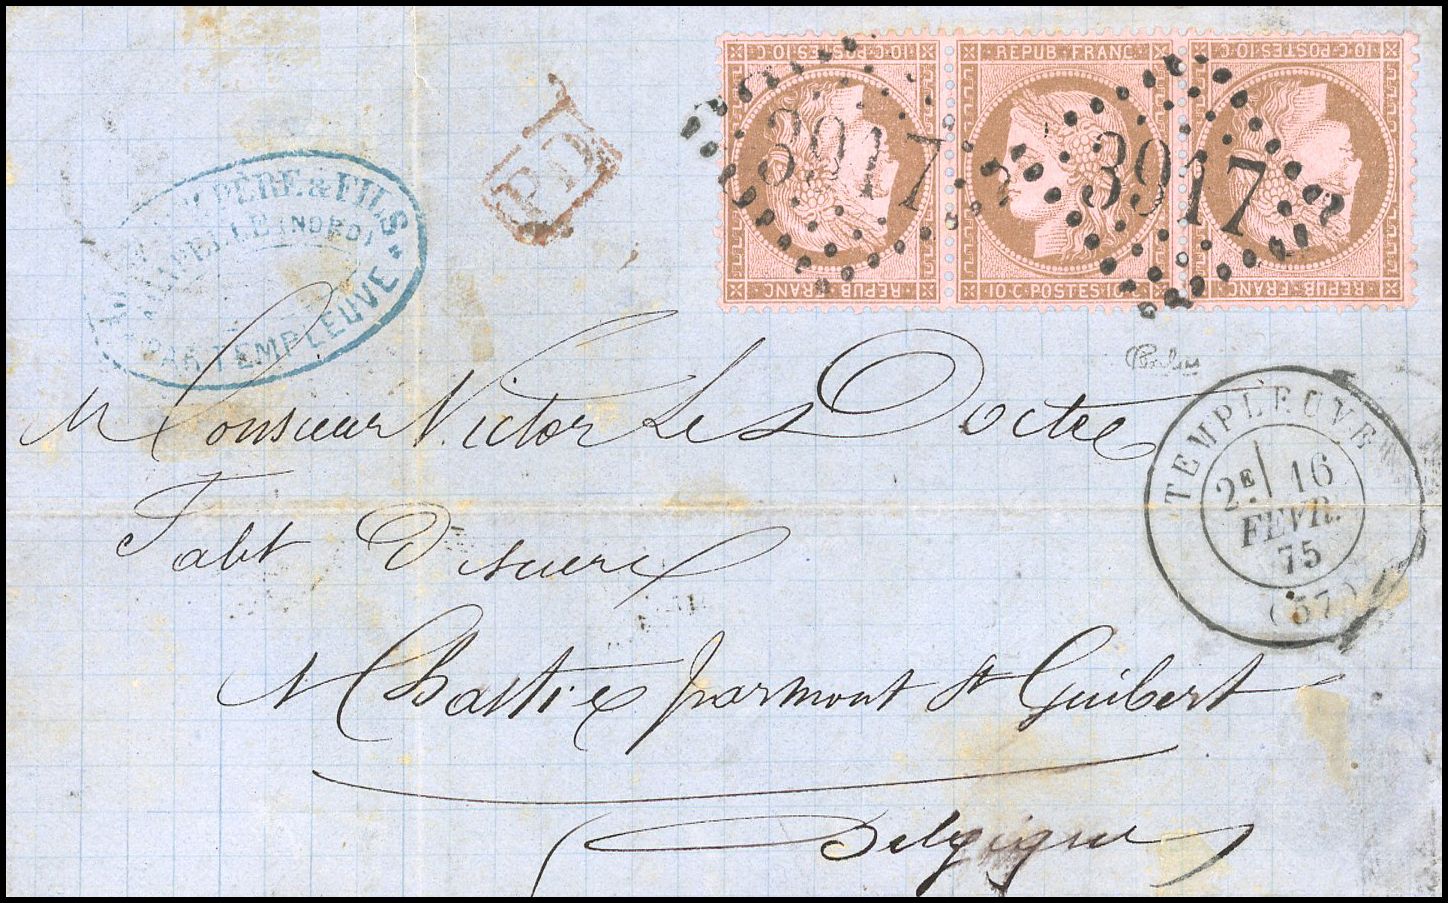 10·C·POSTES·10·C
REPUB·FRANC
REPUB·FRANC·
10·C·POSTES·10·C
10·C·POSTES·10·C
REPUB·FRANC
3917
3917
PD
PÈRE & FILS
(NORD)
PAR TEMPLEUVE
Monsieur Victor Le Docte
Fabt De sucre
A Chastre par mont St Guibert
Belgique
TEMPLEUVE
2E 16
FEVR.
75
(57)